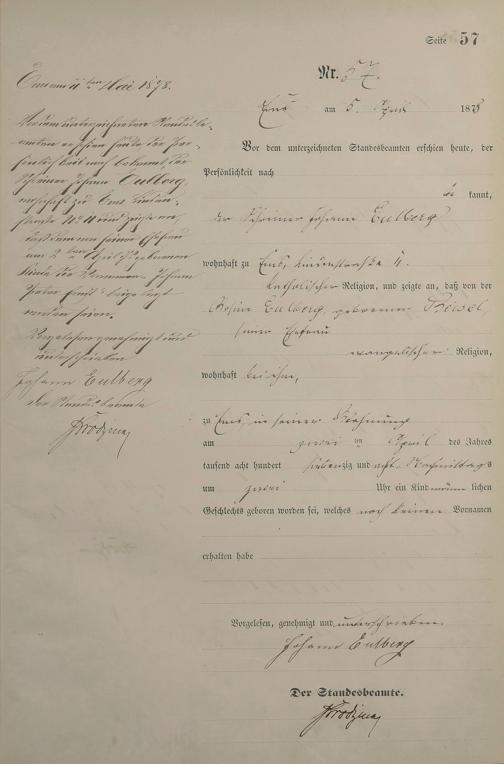 Seite 57
Nr. 57.
Ems am 5. April 1878
Vor dem unterzeichneten Standesbeamten erschien heute, der
Persönlichkeit nach
be kannt,
der Schreiner Johann Eulberg
wohnhaft zu Ems, Lindenstraße 11.
katholischer Religion, und zeigte an, daß von der
Rosine Eulberg, geborenen
seiner Ehefrau
evangelischer Religion,
wohnhaft bei ihm,
zu Ems in seiner Wohnung
am zwei ten April des Jahres
tausend acht hundert siebenzig und acht Nachmittags
um zwei Uhr ein Kind männ lichen
Geschlechts geboren worden sei, welches noch keinen Vornamen
erhalten habe
Vorgelesen, genehmigt und unterschrieben
Johann Eulberg
Der Standesbeamte.
Ems am 11ten Mai 1878.
Vor dem unterzeichneten Standesbe-
amten erschien heute der Per-
sönlichkeit nach bekannt, der
Schreiner Johann Eulberg,
wohnhaft zu Ems Linden-
straße 11 und zeigte an,
daß dem von seiner Ehefrau
am 2ten April geborenen
Kinde die Vornamen Johann
Peter beigelegt
worden seien.
Vorgelesen genehmigt und
unterschrieben
Johann Eulberg
Der Standesbeamte